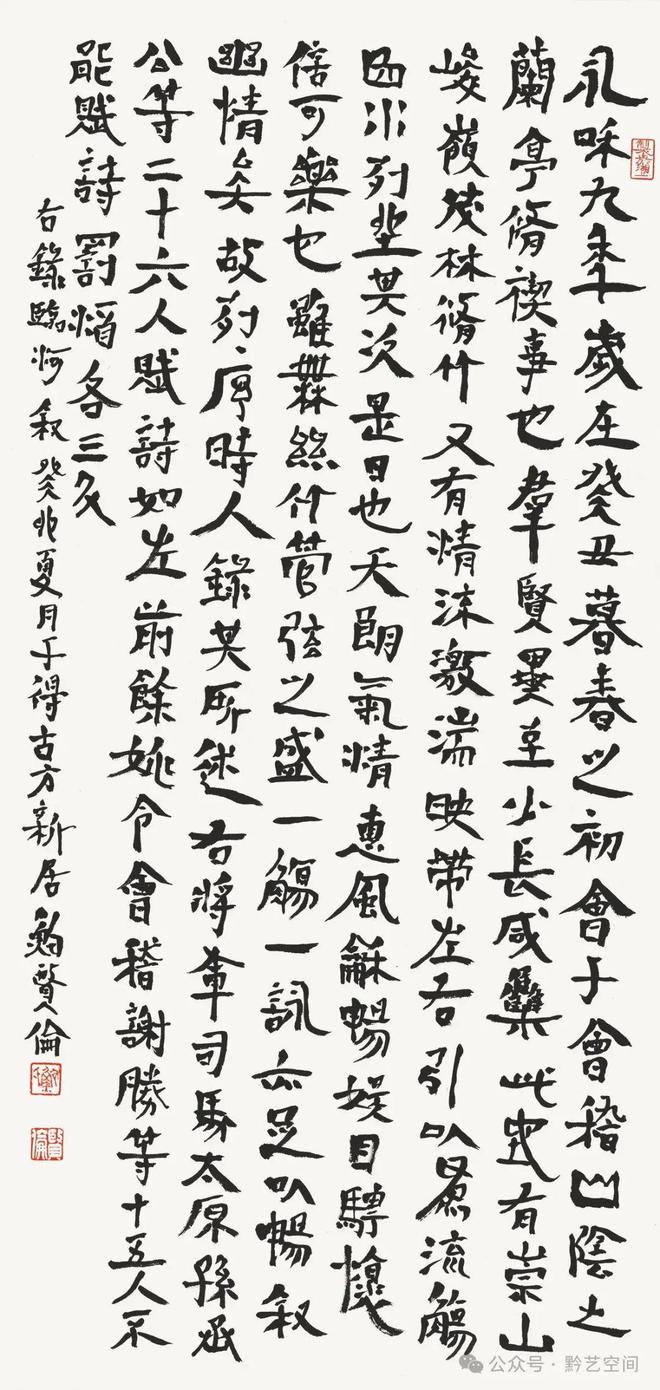 永咊九秊歲在癸丑暮春之初會于會稽山陰之
蘭亭脩禊事也羣賢畢至少長咸集此地有崇山
峻嶺茂林脩竹又有清流激湍映帶左右引以爲流觴
曲水列坐其次是日也天朗氣清惠風龢暢娛目騁懷
信可樂也雖無絲竹管弦之盛一觴一詠亦足以暢叙
幽情矣故列序時人錄其所述右將軍司馬太原孫丞
公等二十六人賦詩如左前餘姚令會稽謝勝等十五人不
能賦詩罰酒各三斗
右錄臨河叙癸卯夏月于得古方新居賢倫
公众号·黔艺空间